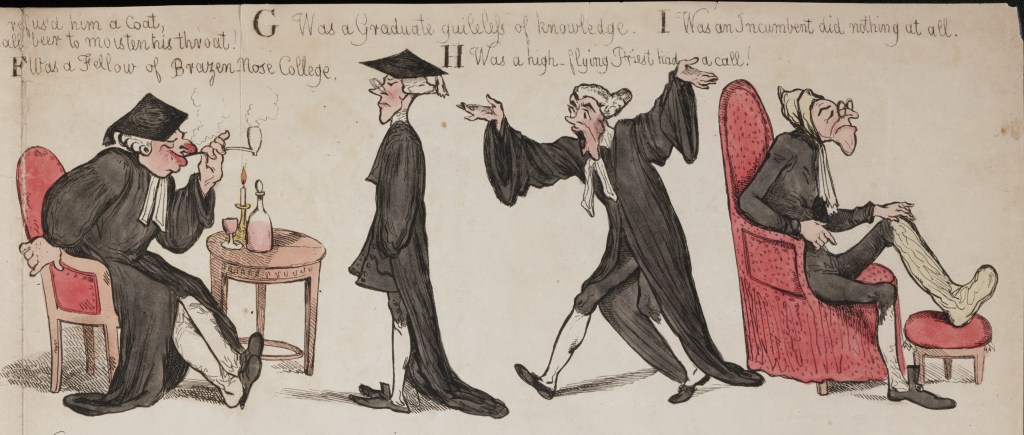 refus'd him a Coat,
ale beer to moisten his throat!
F Was a Fellow of Brazen-Nose College.
G Was a Graduate guileless of knowledge.
H Was a high-flying Priest had a call!
I Was an Incumbent did nothing at all.